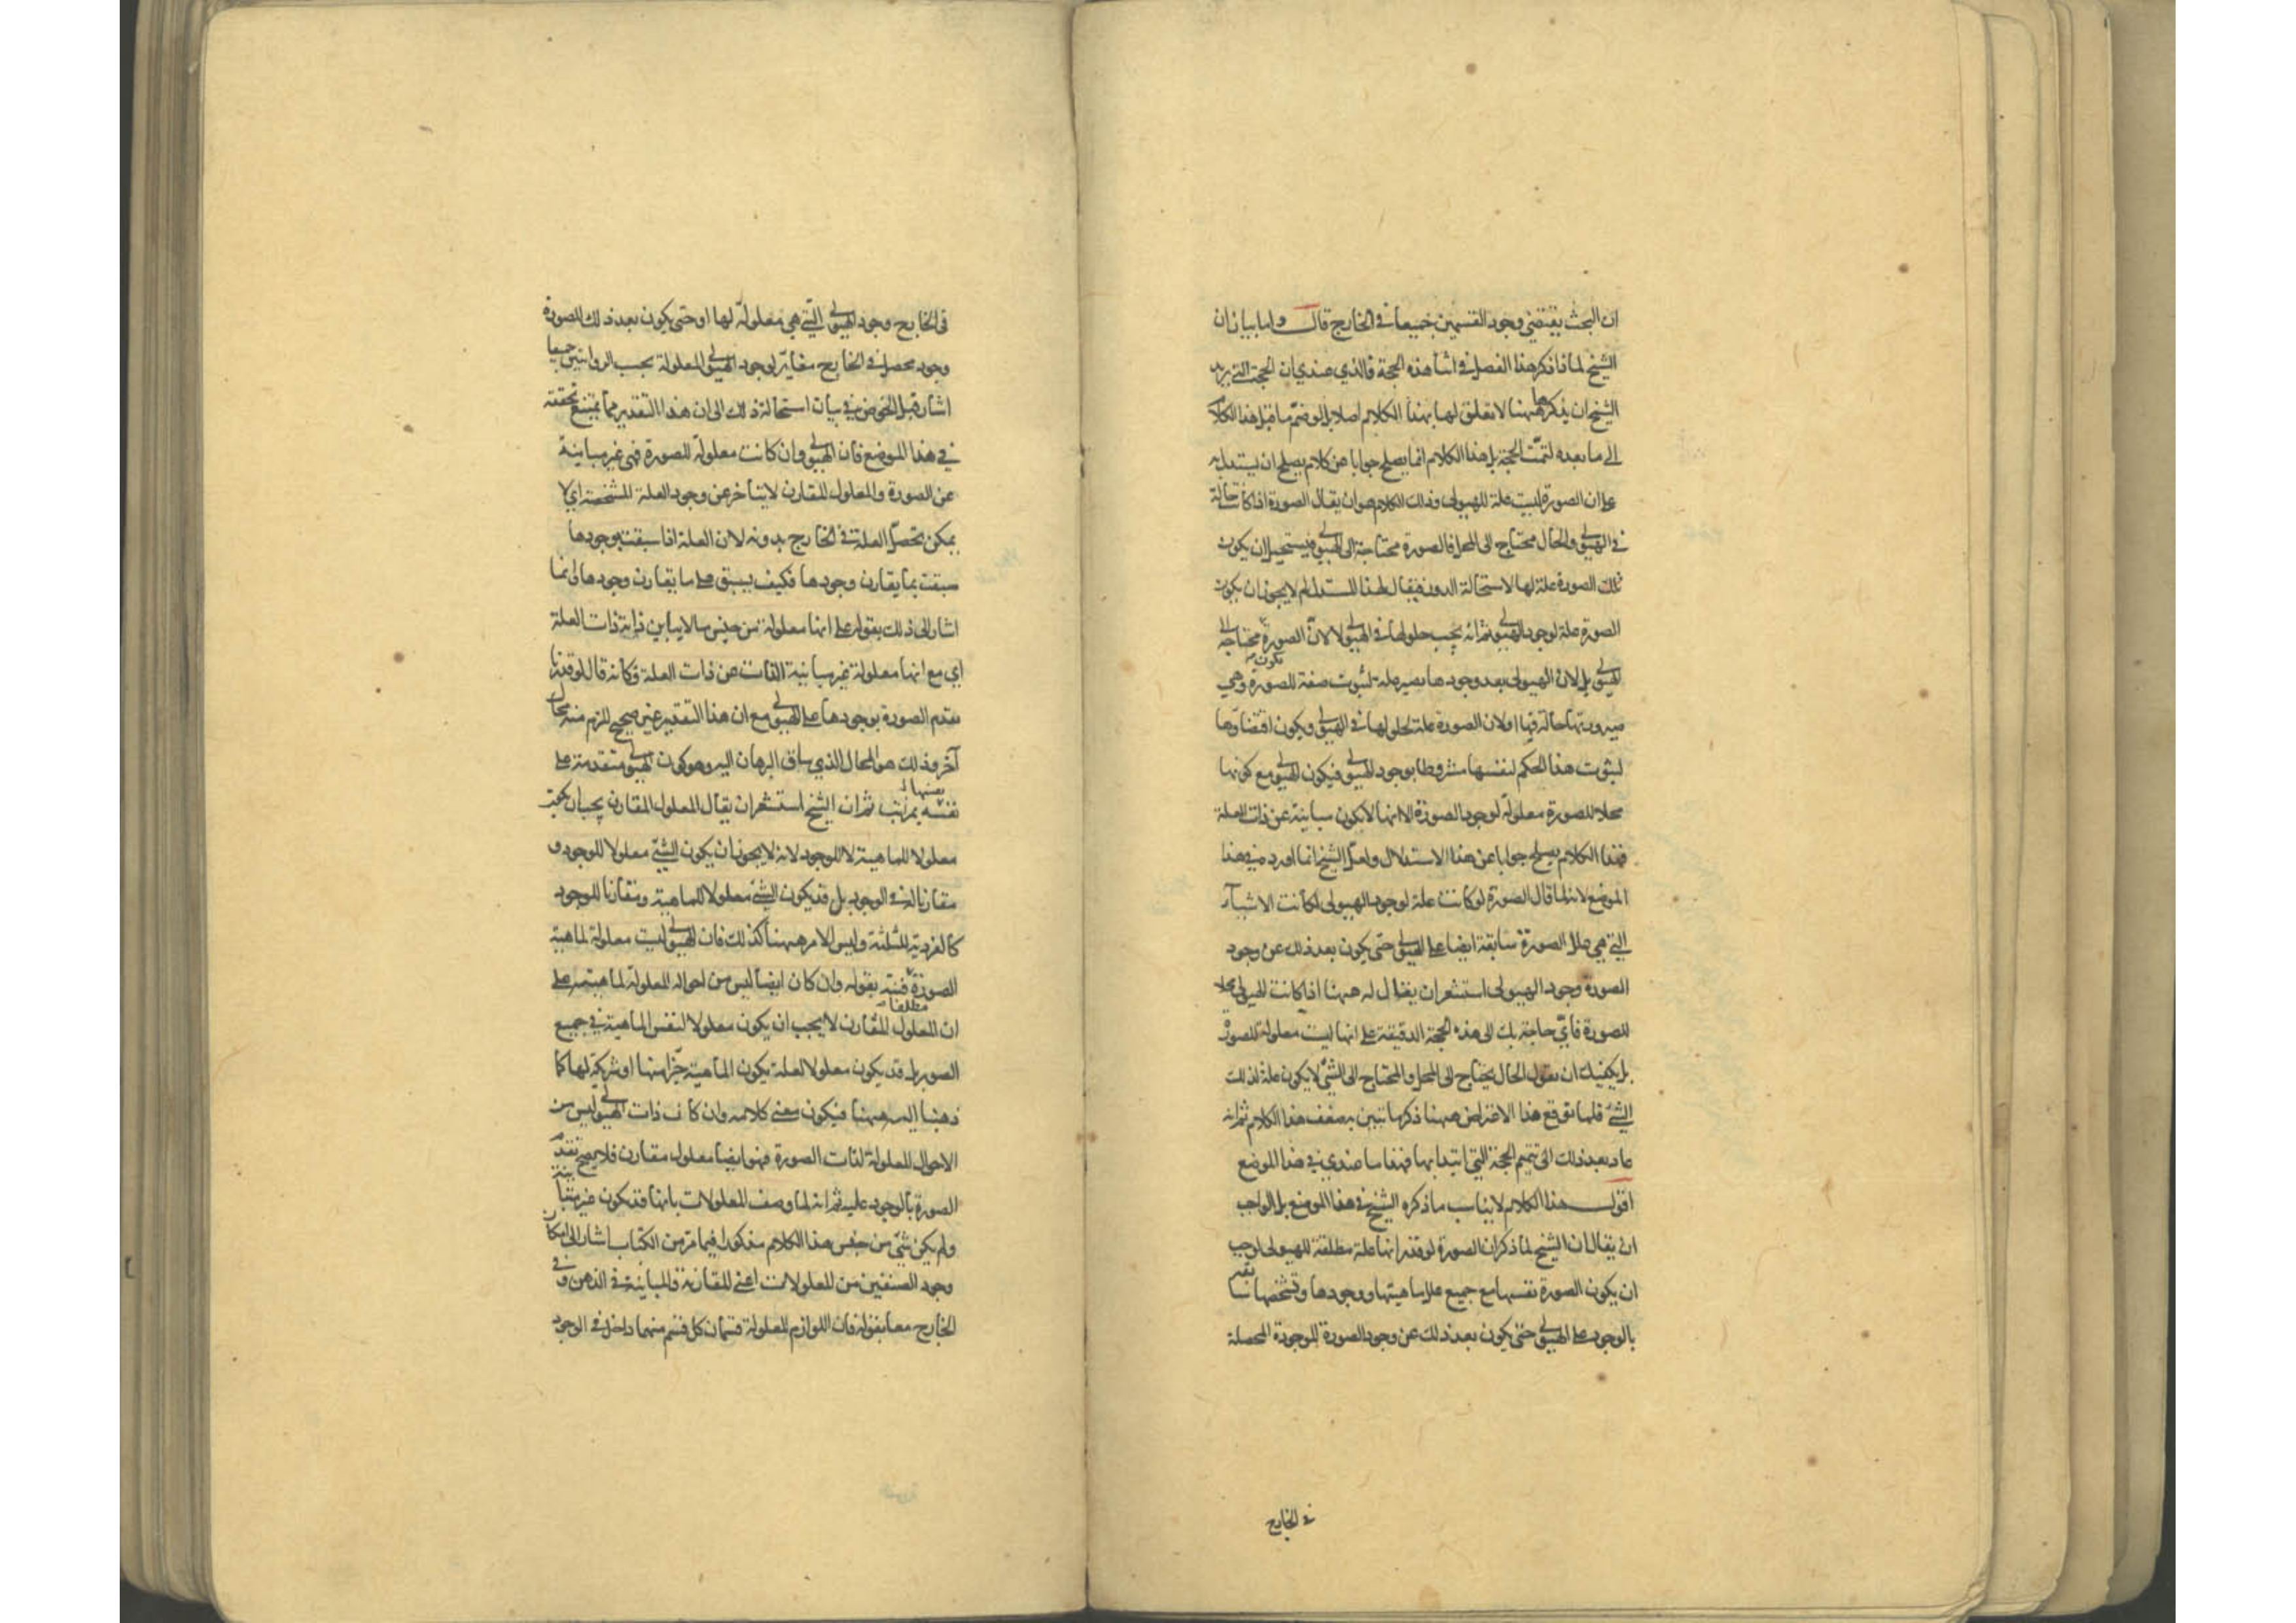 ان البحث يقتضي وجود القسمين جميعا في الخارج قال واما بيان ان
الشيخ لماذا ذكر هذا الفصل في اثنا هذه الحجة فالذي عندي ان الحجة التي يريد
الشيخ ان يذكرها ههنا لا تعلق لها بهذا الكلام اصلا بل لو ضم ما قبل هذا الكلام
الى ما بعده لتمت الحجة بل هذا الكلام انما يصلح جوابا عن كلام يصلح ان يستدل به
على ان الصورة ليست علة للهيولى وذلك الكلام هو ان يقال الصورة اذا كانت حالة
في الهيولى والحال محتاج الى المحل فالصورة محتاجة الى الهيولى فيستحيل ان يكون
تلك الصورة علة لها لاستحالة الدور فيقال لهذا المستدل لم لا يجوز ان يكون
الصورة علة لوجود الهيولى ثم انه يجب حلولها في الهيولى لا لان الصورة محتاجة الى
الهيولى بل لان الهيولى بعد وجودها يصير علة لثبوت صفة للصورة وهي
صيرورتها حالة فيها او لان الصورة علة لحلولها في الهيولى ويكون اقتضاؤها
لثبوت هذا الحكم لنفسها مشروطا بوجود الهيولى فيكون الهيولى مع كونها
محلا للصورة معلولة لوجود الصورة الا انها لا يكون مباينة عن ذات العلة
فهذا الكلام يصلح جوابا عن هذا الاستدلال ولعل الشيخ انما اورده في هذا
الموضع لانه لما قال الصورة لو كانت علة لوجود الهيولى لكانت الاشياء
التي هي علل الصورة سابقة ايضا على الهيولى حتى يكون بعد ذلك عن وجود
الصورة وجود الهيولى استشعر ان يقال له ههنا اذا كانت الهيولى محلا
للصورة فاي حاجة بك الى هذه الحجة الدقيقة على انها ليست معلولة للصورة
بل يكفيك ان تقول الحال يحتاج الى المحل والمحتاج الى الشيء لا يكون علة لذلك
الشيء فلما توقع هذا الاعتراض ههنا ذكر ما تبين به ضعف هذا الكلام ثم انه
عاد بعد ذلك الى تتميم الحجة التي ابتدا بها فهذا ما عندي في هذا الموضع
اقول هذا الكلام لا يناسب ما ذكره الشيخ في هذا الموضع بل الواجب
ان يقال ان الشيخ لما ذكر ان الصورة لو قدر انها علة مطلقة للهيولى لوجب
ان يكون الصورة نفسها مع جميع علل ماهيتها ووجودها وتشخصها سابقة
بالوجود على الهيولى حتى يكون بعد ذلك عن وجود الصورة الموجودة المحصلة
في الخارج
في الخارج وجود الهيولى التي هي معلولة لها او حتى يكون بعد ذلك للصورة
وجود محصل في الخارج مغاير لوجود الهيولى المعلولة بحسب الروايتين جميعا
اشار قبل الخوض في بيان استحالة ذلك الى ان هذا التقدير مما يمتنع تحققه
في هذا الموضع فان الهيولى وان كانت معلولة للصورة فهي غير مباينة
عن الصورة والمعلول المقارن لا يتاخر عن وجود العلة المشخصة اي لا
يمكن تحصل العلة في الخارج بدونه لان العلة اذا سبقت بوجودها
سبقت بما يقارن وجودها فكيف يسبق على ما يقارن وجودها وانما
اشار الى ذلك بقوله على انها معلولة من جنس ما لا يباين ذاته ذات العلة
اي مع انها معلولة غير مباينة الذات عن ذات العلة فكانه قال لو قدرنا
تقدم الصورة بوجودها على الهيولى مع ان هذا التقدير غير صحيح للزم منه محال
آخر وذلك هو المحال الذي ساق البرهان اليه وهو كون الهيولى متقدمة على
نفسها بمراتب ثم ان الشيخ استشعر ان يقال المعلول المقارن يجب ان يكون
معلولا للماهية لا للوجود لانه لا يجوز ان يكون الشيء معلولا للوجود و
مقارنا له في الوجود بل قد يكون الشيء معلولا للماهية ومقارنا للوجود
كالفردية للثلثة وليس الامر ههنا كذلك فان الهيولى ليست معلولة لماهية
الصورة فنبه بقوله وان كان ايضا ليس من احواله المعلولة لماهيته على
ان المعلول المقارن لا يجب ان يكون معلولا لنفس الماهية مطلقا في جميع
الصور بل قد يكون معلولا لعلة يكون الماهية جزءا منها او شريكة لها كما
ذهبنا اليه ههنا فيكون معنى كلامه وان كان ذات الهيولى ليس من
الاحوال المعلولة لذات الصورة فهو ايضا معلول مقارن فلا يصح تقدم
الصورة بالوجود عليه ثم انه لما وصف المعلولات بانها قد يكون غير مباينة
ولم يكن شيء من جنس هذا الكلام مذكورا فيما مر من الكتاب اشار الى امكان
وجود الصنفين من المعلولات اعني المقارنة والمباينة في الذهن وفي
الخارج معا بقوله فان اللوازم المعلولة قسمان كل قسم منهما داخل في الوجود